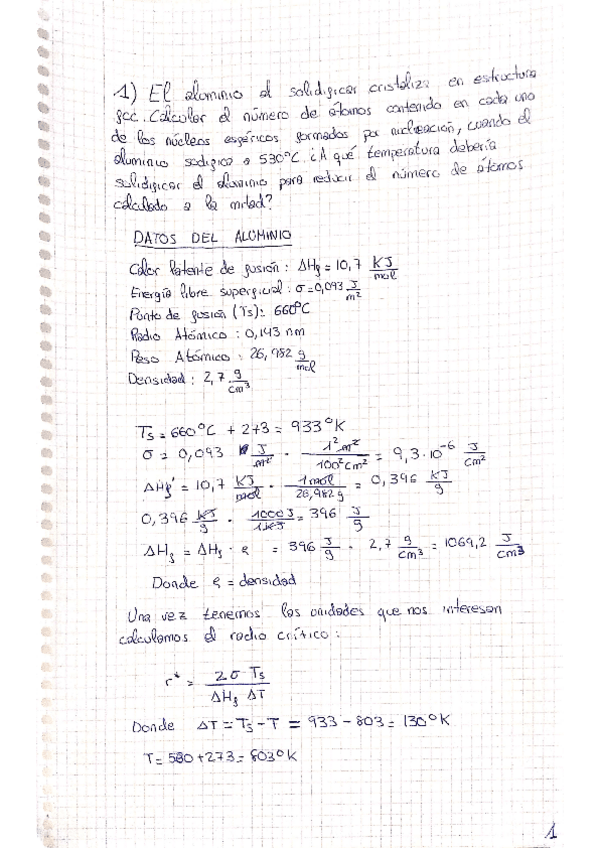 1) El aluminio al solidificar cristaliza en estructura
fcc. Calcular el número de átomos contenido en cada uno
de los núcleos esféricos formados por nucleación, cuando el
aluminio sodifica a 530ºC. ¿A qué temperatura debería
solidificar el aluminio para reducir el número de átomos
calculado a la mitad?
DATOS DEL ALUMINIO
Calor latente de fusión: ΔHf = 10,7 KJ/mol
Energía libre superficial: σ = 0,093 J/m²
Punto de fusión (Ts): 660ºC
Radio Atómico: 0,143 nm
Peso Atómico: 26,982 g/mol
Densidad: 2,7 g/cm³
Ts = 660ºC + 273 = 933ºK
σ = 0,093 J/m² · 1² m²/100² cm² = 9,3·10⁻⁶ J/cm²
ΔHf' = 10,7 KJ/mol · 1 mol/26,982 g = 0,396 KJ/g
0,396 KJ/g · 1000 J/1 KJ = 396 J/g
ΔHf = ΔHf · ρ = 396 J/g · 2,7 g/cm³ = 1069,2 J/cm³
Donde ρ = densidad
Una vez tenemos las unidades que nos interesan
calculamos el radio crítico:
r* = 2σ Ts / ΔHf ΔT
Donde ΔT = Ts - T = 933 - 803 = 130ºK
T = 530 + 273 = 803ºK
1